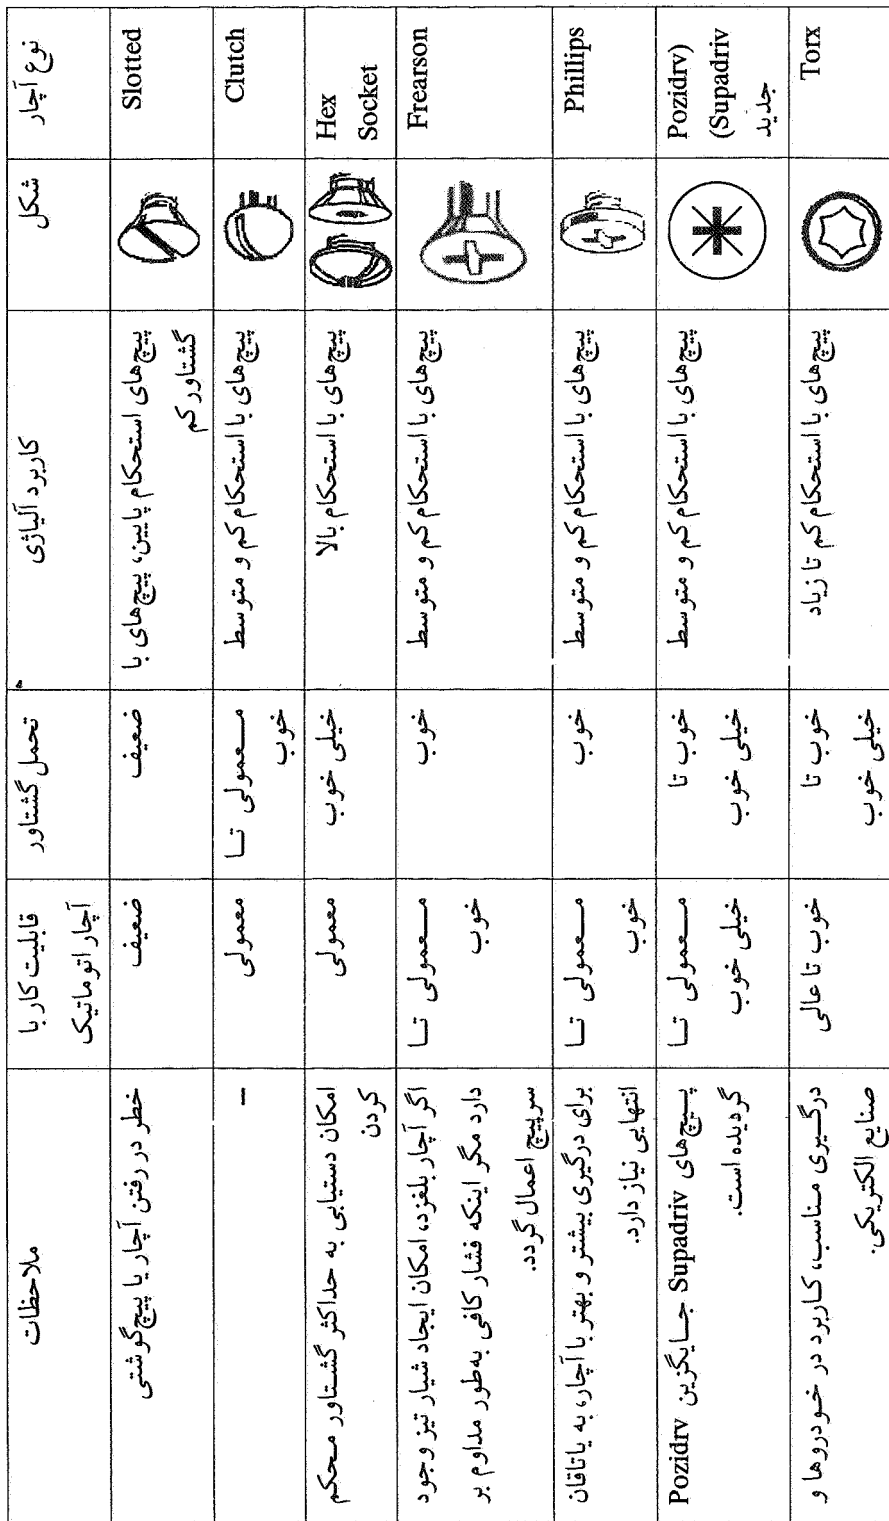 نوع آچار
شکل
کاربرد آلیاژی
تحمل گشتاور
قابلیت کار با
آچار اتوماتیک
ملاحظات
Slotted
پیچ‌های استحکام پایین، پیچ‌های با
گشتاور کم
ضعیف
ضعیف
خطر در رفتن آچار یا پیچ‌گوشتی
Clutch
پیچ‌های با استحکام کم و متوسط
معمولی تا
خوب
معمولی
–
Hex
Socket
پیچ‌های با استحکام بالا
خیلی خوب
معمولی
امکان دستیابی به حداکثر گشتاور محکم
کردن
Frearson
پیچ‌های با استحکام کم و متوسط
خوب
معمولی تا
خوب
اگر آچار بلغزد، امکان ایجاد شیار تیز وجود
دارد مگر اینکه فشار کافی به‌طور مداوم بر
سرپیچ اعمال گردد.
Phillips
پیچ‌های با استحکام کم و متوسط
خوب
معمولی تا
خوب
برای درگیری بیشتر و بهتر با آچار، به یاتاقان
انتهایی نیاز دارد.
Pozidrv)
(Supadriv
جدید
پیچ‌های با استحکام کم و متوسط
خوب تا
خیلی خوب
معمولی تا
خیلی خوب
پیچ‌های Supadriv جایگزین Pozidrv
گردیده است.
Torx
پیچ‌های با استحکام کم تا زیاد
خوب تا
خیلی خوب
خوب تا عالی
درگیری مناسب، کاربرد در خودروها و
صنایع الکتریکی.